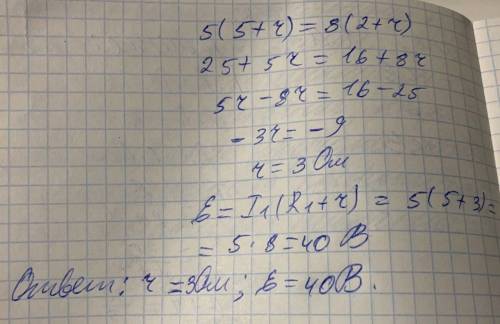 5(5+r) = 8(2+r)
25+5r = 16+8r
5r-8r = 16-25
-3r = -9
r = 3 Ом
ℰ = I₁(R₁+r) = 5(5+3) =
= 5·8 = 40 В
Ответ: r = 3 Ом; ℰ = 40 В.